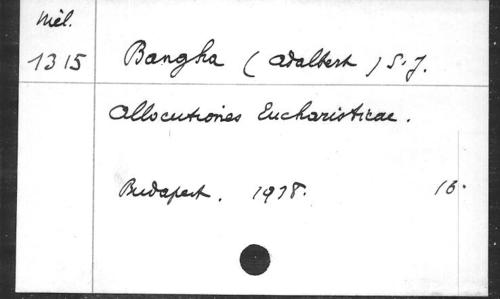 Mél.
1315 Bangha (Adalbert) S. J.
Allocutiones Eucharisticae.
Budapest. 1918. 16.